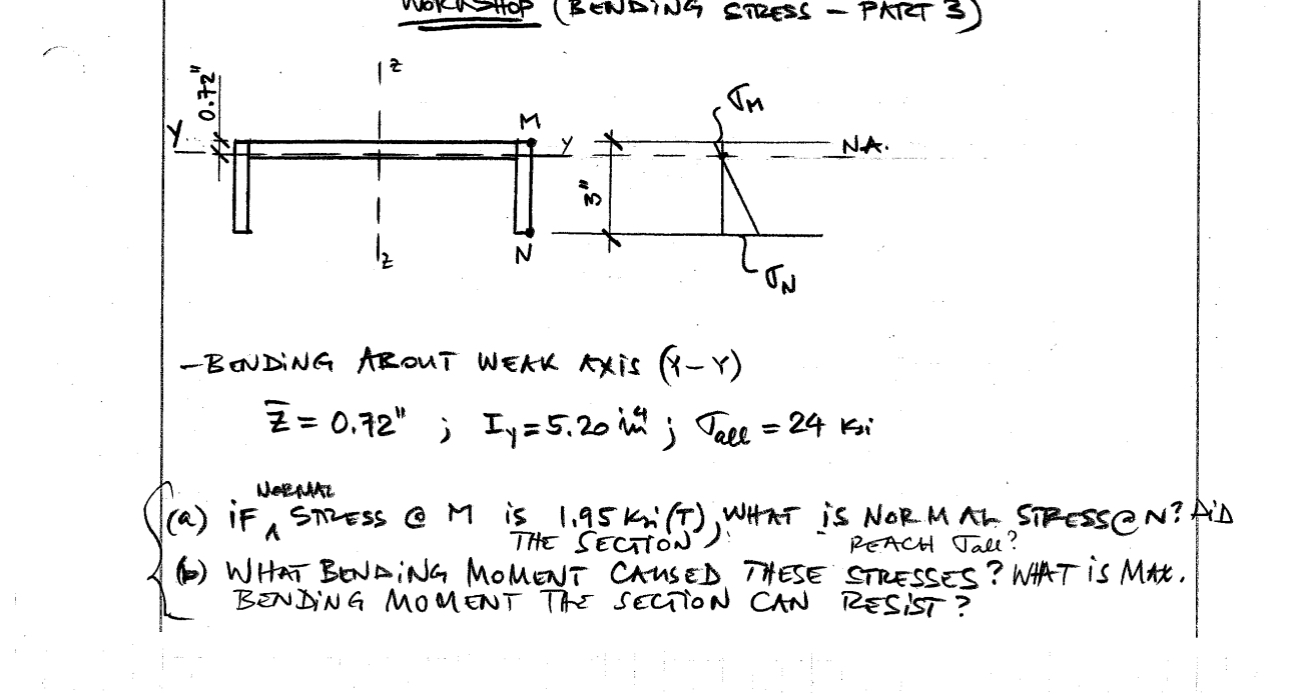 WORKSHOP (BENDING STRESS - PART 3)
Z
0.72"
Y
M
Y
σM
N.A.
3"
N
Z
σN
-BENDING ABOUT WEAK AXIS (Y-Y)
Z̄ = 0.72" ; Iy = 5.20 in⁴ ; σall = 24 Ksi
(a) IF NORMAL STRESS @ M IS 1.95 Ksi (T), WHAT IS NORMAL STRESS @ N? DID
THE SECTION REACH σall?
(b) WHAT BENDING MOMENT CAUSED THESE STRESSES? WHAT IS MAX.
BENDING MOMENT THE SECTION CAN RESIST?